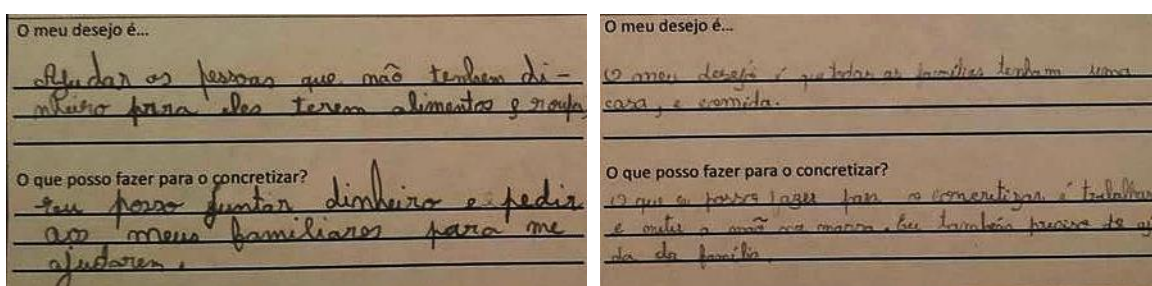 O meu desejo é...
Ajudar as pessoas que não tenhem di-
nheiro para eles terem alimentos e roupa
O que posso fazer para o concretizar?
Eu posso juntar dinheiro e pedir
aos meus familiares para me
ajudarem.
O meu desejo é...
O meu desejo é que todas as famílias tenham uma
casa, e comida.
O que posso fazer para o concretizar?
O que eu posso fazer para o concretizar é trabalhar
e meter a mão na massa. Eu também preciso de aj
da da família.